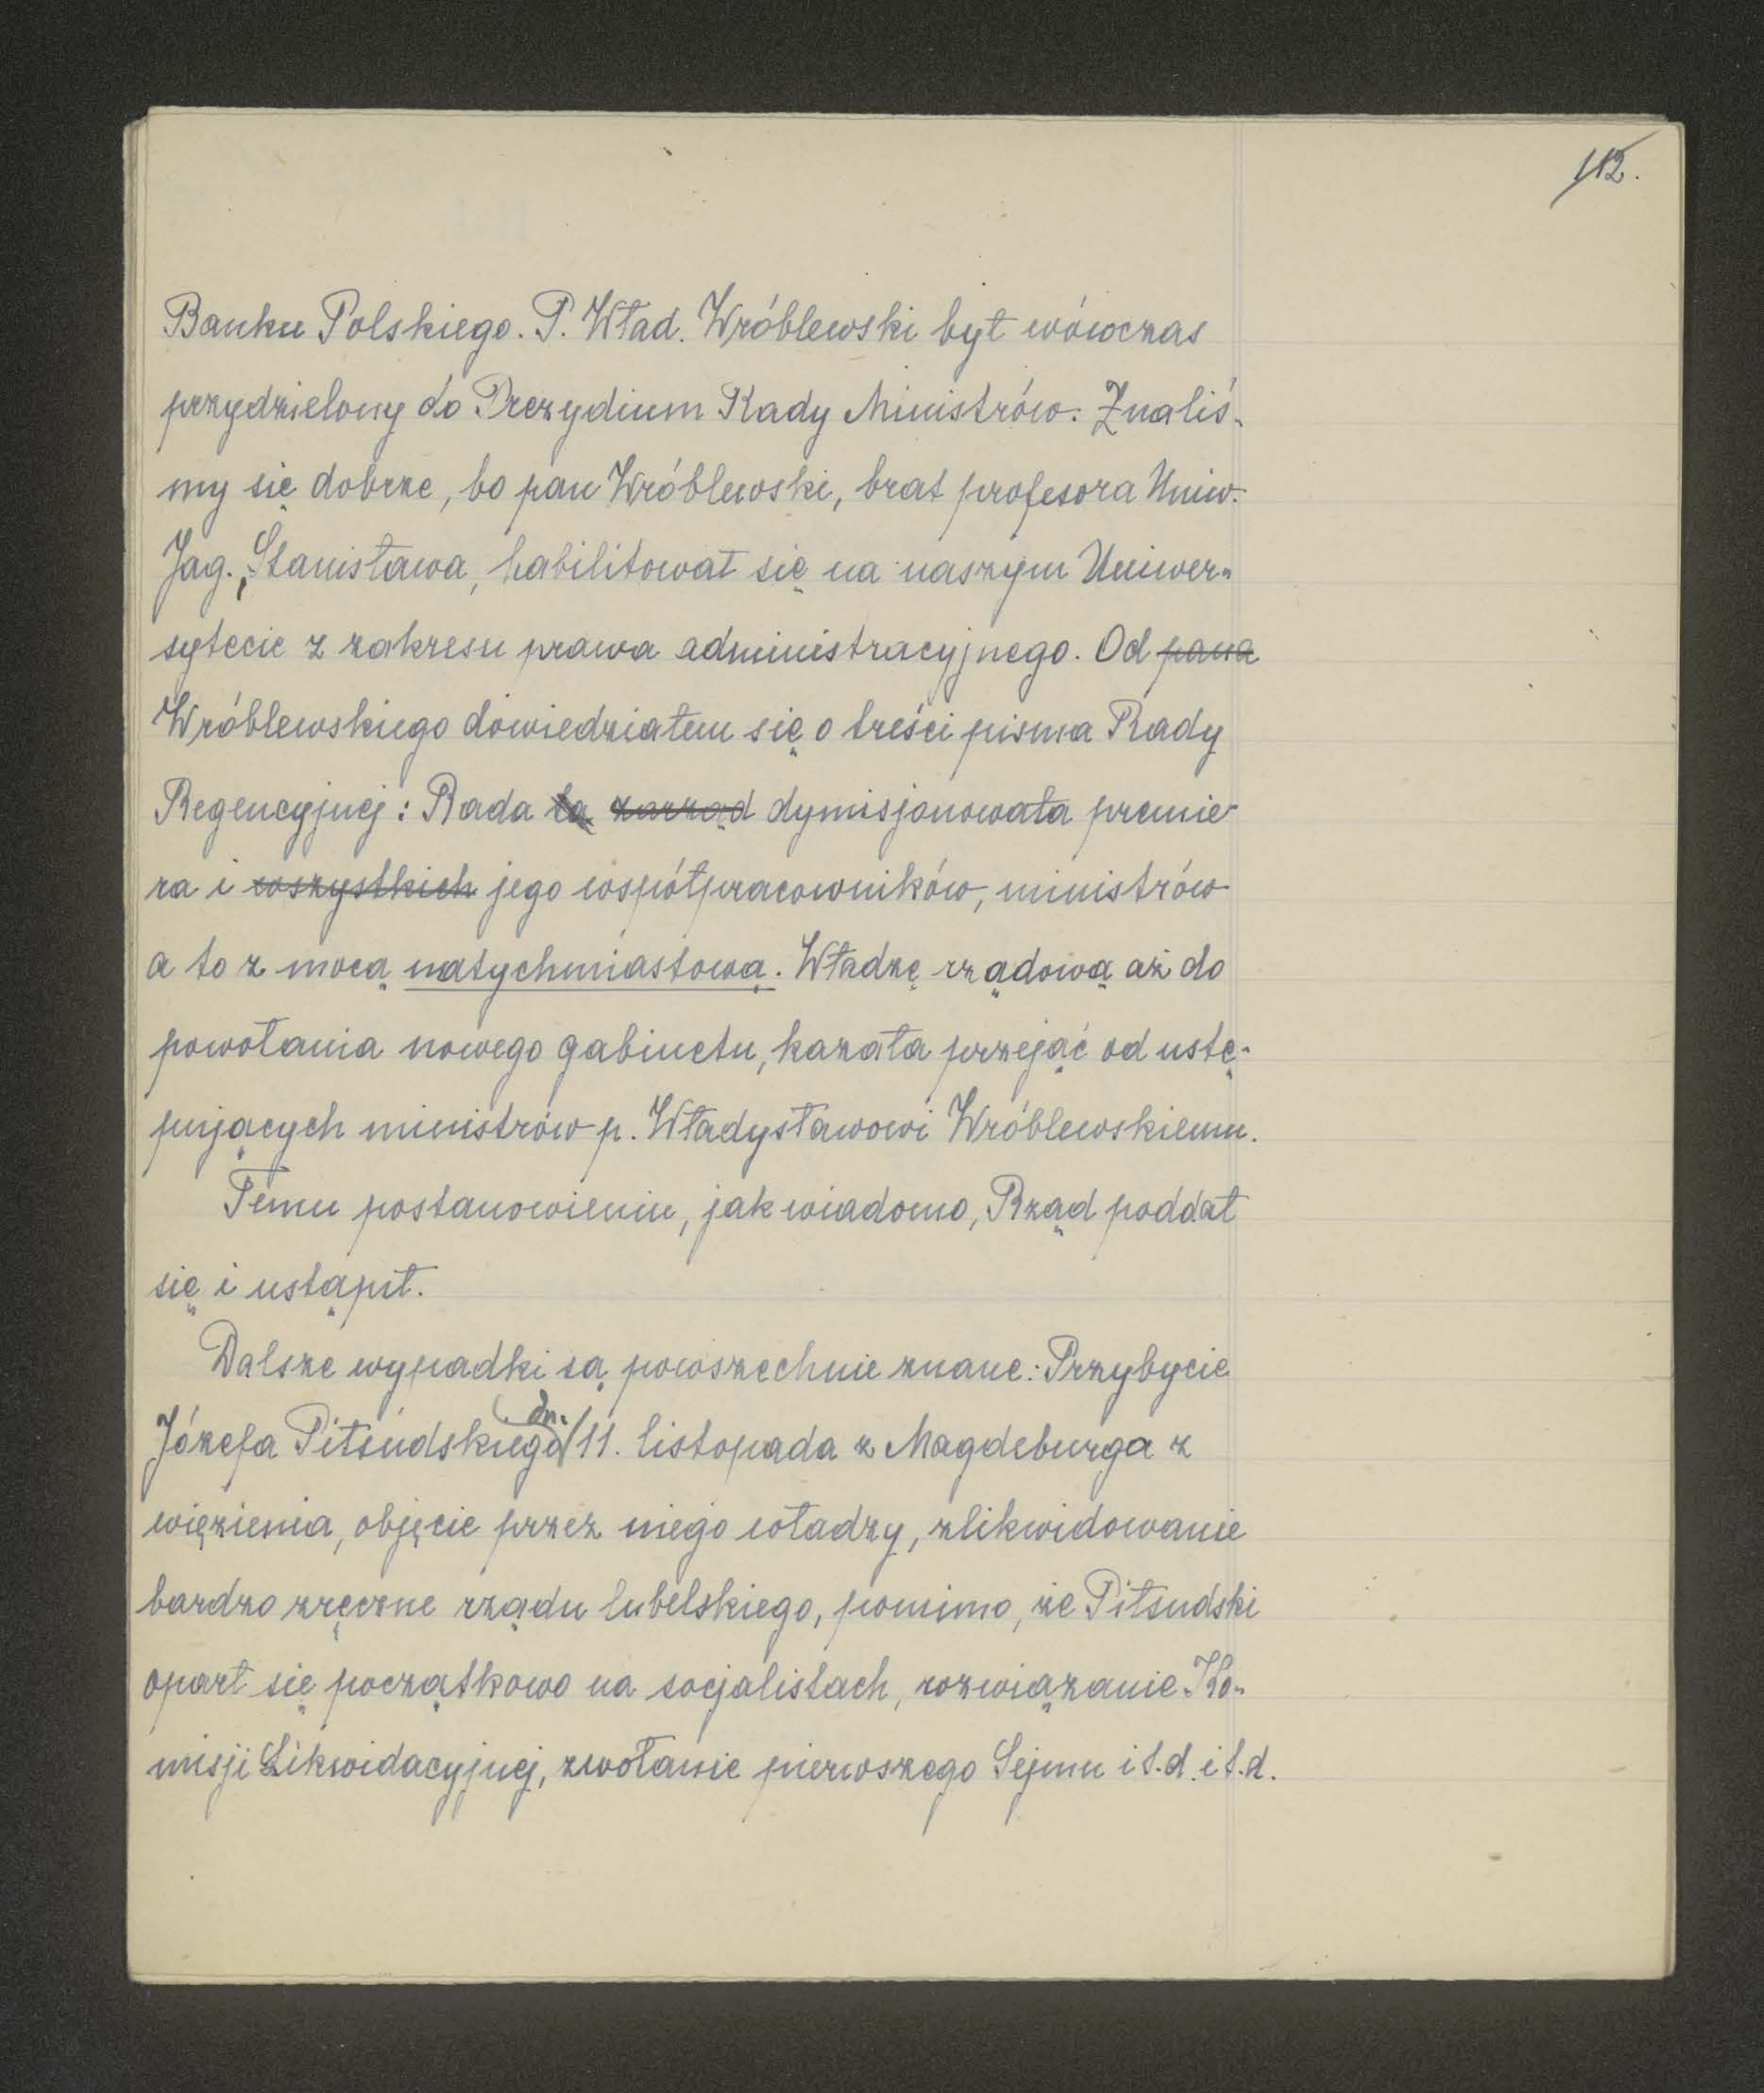 112.
Banku Polskiego. P. Wład. Wróblewski był wówczas
przydzielony do Prezydium Rady Ministrów. Znaliś-
my się dobrze, bo pan Wróblewski, brat profesora Uniw.
Jag., Stanisława, habilitował się na naszym Uniwer-
sytecie z zakresu prawa administracyjnego. Od pana
Wróblewskiego dowiedziałem się o treści pisma Rady
Regencyjnej: Rada ta zarząd dymisjonowała premie
ra i wszystkich jego współpracowników, ministrów
a to z mocą natychmiastową. Władzę rządową aż do
powołania nowego gabinetu, kazała przejąć od ustę-
pujących ministrów p. Władysławowi Wróblewskiemu.
Temu postanowieniu, jak wiadomo, Rząd poddał
się i ustąpił.
Dalsze wypadki są powszechnie znane: Przybycie
Józefa Piłsudskiego dn. 11. listopada z Magdeburga z
więzienia, objęcie przez niego władzy, zlikwidowanie
bardzo zręczne rządu lubelskiego, pomimo, że Piłsudski
oparł się początkowo na socjalistach, rozwiązanie Ko-
misji Likwidacyjnej, zwołanie pierwszego Sejmu i t.d. i t.d.